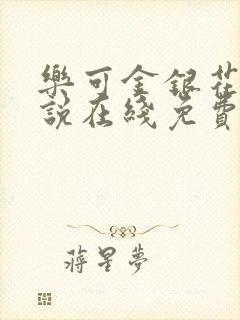 樂可金銀花
說在綫免費
蔣星夢